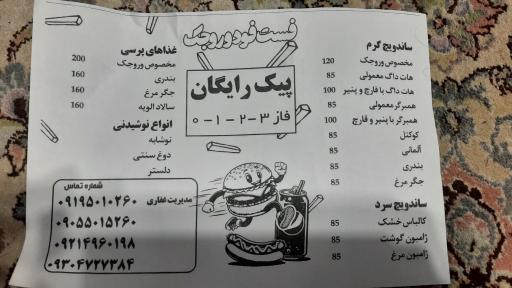 فست فود وروجک
ساندویچ گرم
مخصوص وروجک 120
هات داگ معمولی 85
هات داگ با قارچ و پنیر 100
همبرگر معمولی 85
همبرگر با پنیر و قارچ 100
کوکتل 85
آلمانی 85
بندری 85
جگر مرغ 85
ساندویچ سرد
کالباس خشک 85
ژامبون گوشت 85
ژامبون مرغ 85
پیک رایگان
فاز ۳-۲-۱-۰
غذاهای پرسی
مخصوص وروجک 200
بندری 160
جگر مرغ 160
سالاد الویه 160
انواع نوشیدنی
نوشابه
دوغ سنتی
دلستر
شماره تماس
مدیریت غفاری ۰۹۱۹۵۰۱۰۲۶۰
۰۹۰۵۵۰۱۵۲۶۰
۰۹۲۱۴۹۶۰۱۹۸
۰۹۳۰۴۷۲۷۳۸۴